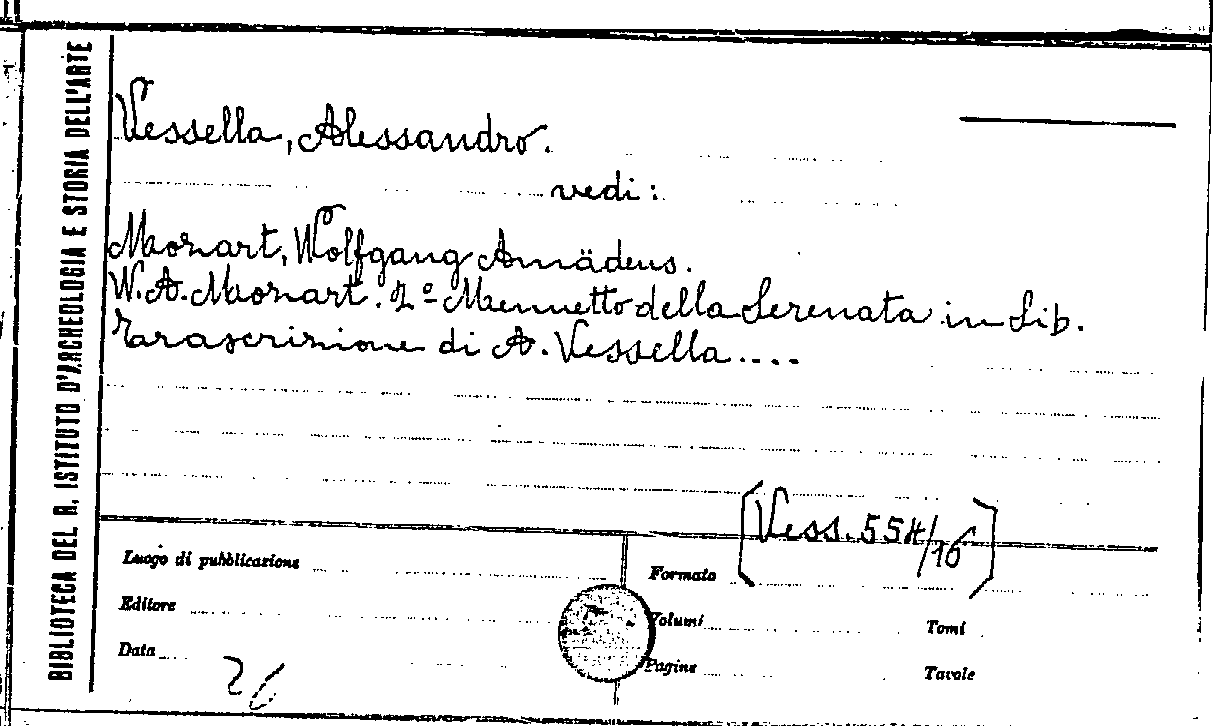 BIBLIOTECA DEL R. ISTITUTO D'ARCHEOLOGIA E STORIA DELL'ARTE
Vessella, Alessandro.
vedi:
Mozart, Wolfgang Amädeus.
W. A. Mozart. 2º Menuetto della Serenata in Sib.
Trascrizione di A. Vessella....
[Vess. 554/16]
Luogo di pubblicazione
Formato
Editore
Volumi
Tomi
Data
Pagine
Tavole
26